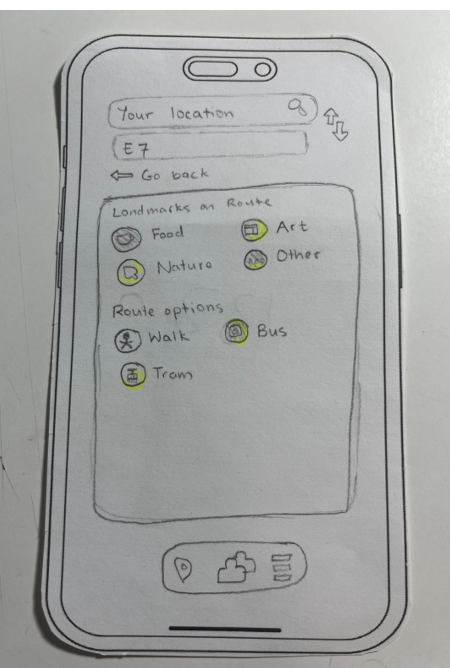 Your location
E7
Go back
Landmarks on Route
Food Art
Nature Other
Route options
Walk Bus
Tram